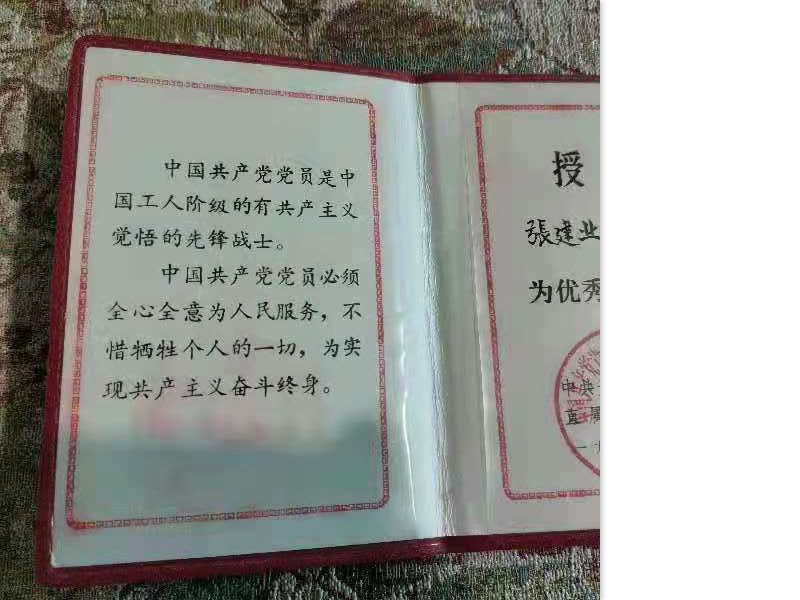 中国共产党党员是中
国工人阶级的有共产主义
觉悟的先锋战士。
中国共产党党员必须
全心全意为人民服务，不
惜牺牲个人的一切，为实
现共产主义奋斗终身。
授
張建业
为优秀
中央
直属
一九